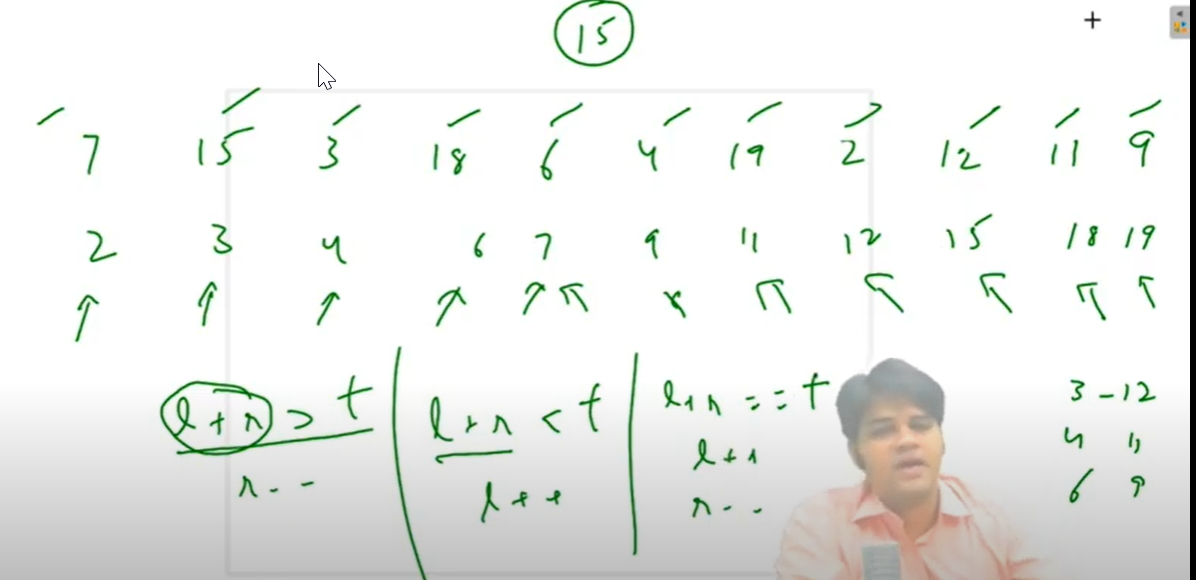 15
7 15 3 18 6 4 19 2 12 11 9
2 3 4 6 7 9 11 12 15 18 19
l+r > t
r--
l+r < t
l++
l+r == t
l++
r--
3 - 12
4 11
6 9